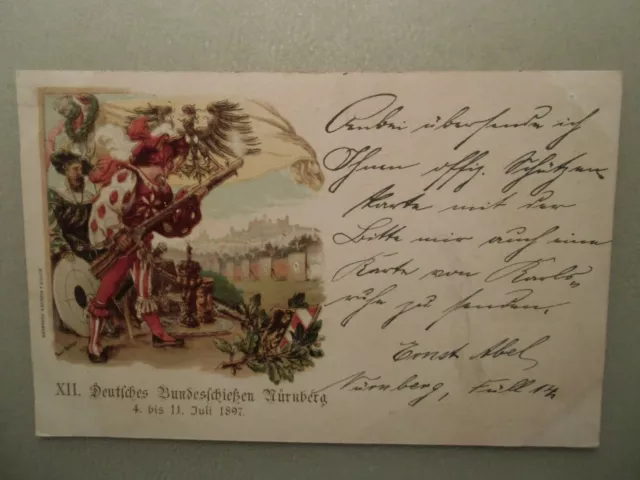 Anbei übersende ich
Ihnen offiz. Schützen
karte mit der
Bitte mir auch eine
Karte von Karls„
ruhe zu senden.
Ernst Abel
Nürnberg, Füll
XII. Deutsches Bundesschießen Nürnberg
4. bis 11. Juli 1897.